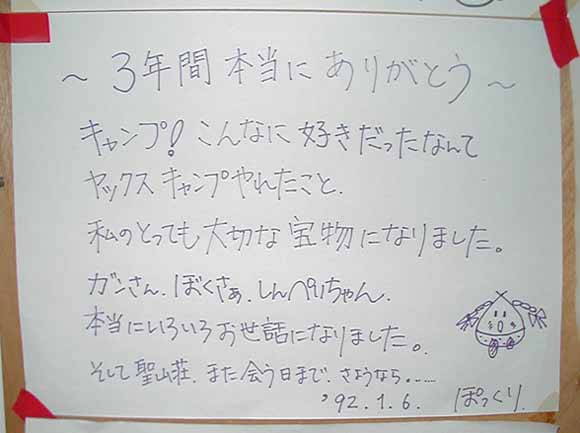 ～3年間本当にありがとう～
キャンプ!こんなに好きだったなんて
ヤックスキャンプやれたこと.
私のとっても大切な宝物になりました。
ガンさん.ぼくさぁ.しんぺいちゃん.
本当にいろいろお世話になりました。
そして聖山荘.また会う日まで.さようなら.....
'92.1.6. ぽっくり.